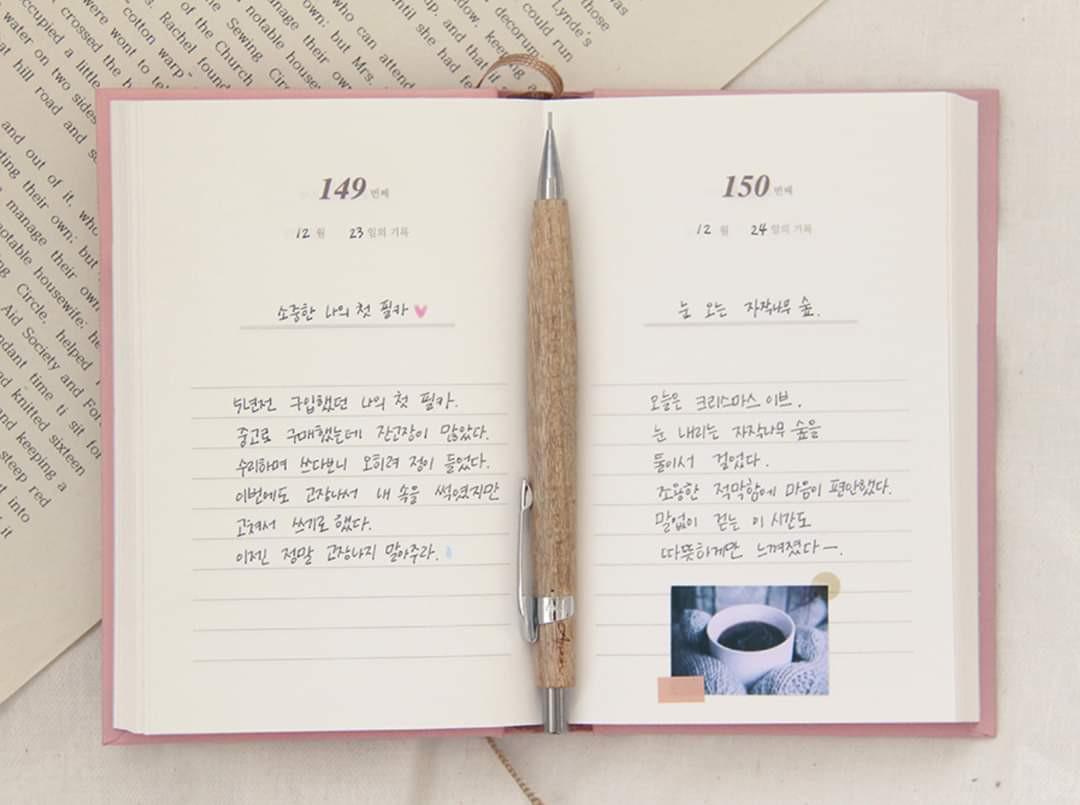 those
was
Lynde's
could run
decorum;
window, keeping
up, and that if
until she had
who can attend
own; but Mrs.
manage their own
notable
Sewing
of the Church
Rachel found
"cotton warp"
were wont to
occupied a little
crossed the
water on two sides
hill road and
and out of it, who
their own; but
manage their own
notable housewife.
Circle, helped
Aid Society and
time
knitted sixteen
and keeping a
steep red
into
it
149 번째
12 월 23 일의 기록
소중한 나의 첫 필카
5년전 구입했던 나의 첫 필카.
중고로 구매했는데 잔고장이 많았다.
수리하며 쓰다보니 오히려 정이 들었다.
이번에도 고장나서 내 속을 썩였지만
고쳐서 쓰기로 했다.
이젠 정말 고장나지 말아주라.
150 번째
12 월 24 일의 기록
눈 오는 자작나무 숲.
오늘은 크리스마스 이브.
눈 내리는 자작나무 숲을
둘이서 걸었다.
조용한 적막함에 마음이 편안했다.
말없이 걷는 이 시간도
따뜻하게만 느껴졌다—.